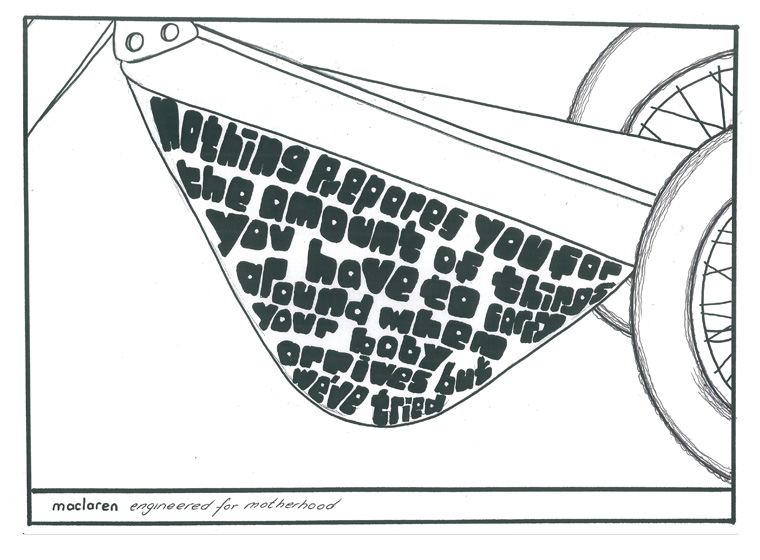 Nothing prepares you for
the amount of things
you have to carry
around when
your baby
arrives but
we've tried
maclaren engineered for motherhood